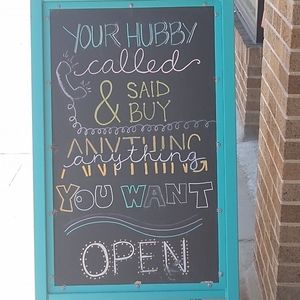 YOUR HUBBY
called
& SAID
BUY
ANYTHING
anything
YOU WANT
OPEN